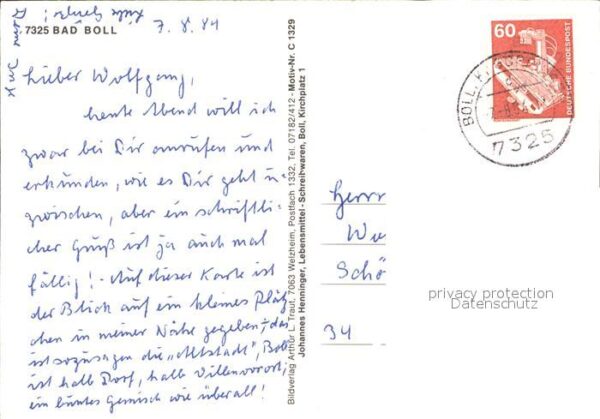 7325 BAD BOLL
7. 8. 84
Lieber Wolfgang,
heute Abend will ich
zwar bei Dir anrufen und
erkunden, wie es Dir geht in-
zwischen, aber ein schriftli-
cher Gruß ist ja auch mal
fällig! - Auf dieser Karte ist
der Blick auf ein kleines Plätz-
chen in meiner Nähe gegeben, - das
ist sozusagen die "Altstadt", Boll
ist halb Dorf, halb Villenvorort,
ein buntes Gemisch wie überall!
Bildverlag Arthur F. Traut, 7063 Welzheim, Postfach 1332, Tel. 07182/412 · Motiv-Nr. C 1329
Johannes Henninger, Lebensmittel - Schreibwaren, Boll, Kirchplatz 1
60
DEUTSCHE BUNDESPOST
BOLL
7325
Herrn
Schö
34
privacy protection
Datenschutz